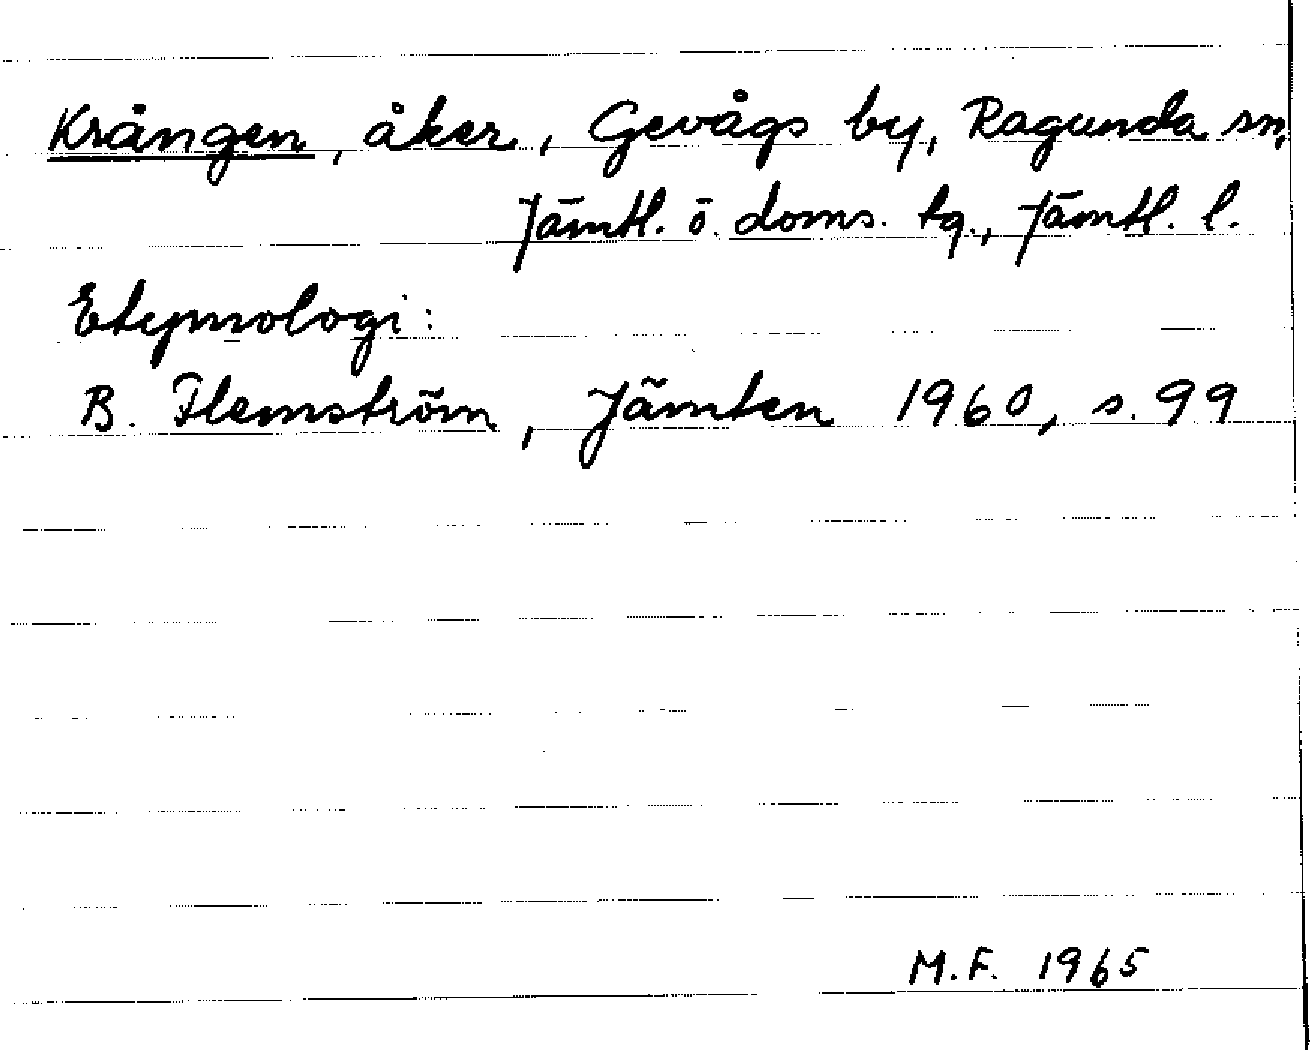 Krången, åker, Gevågs by, Ragunda sn,
Jämtl. ö. doms. tg., Jämtl. l.
Etymologi:
B. Flemström, Jämten 1960, s. 99
M.F. 1965